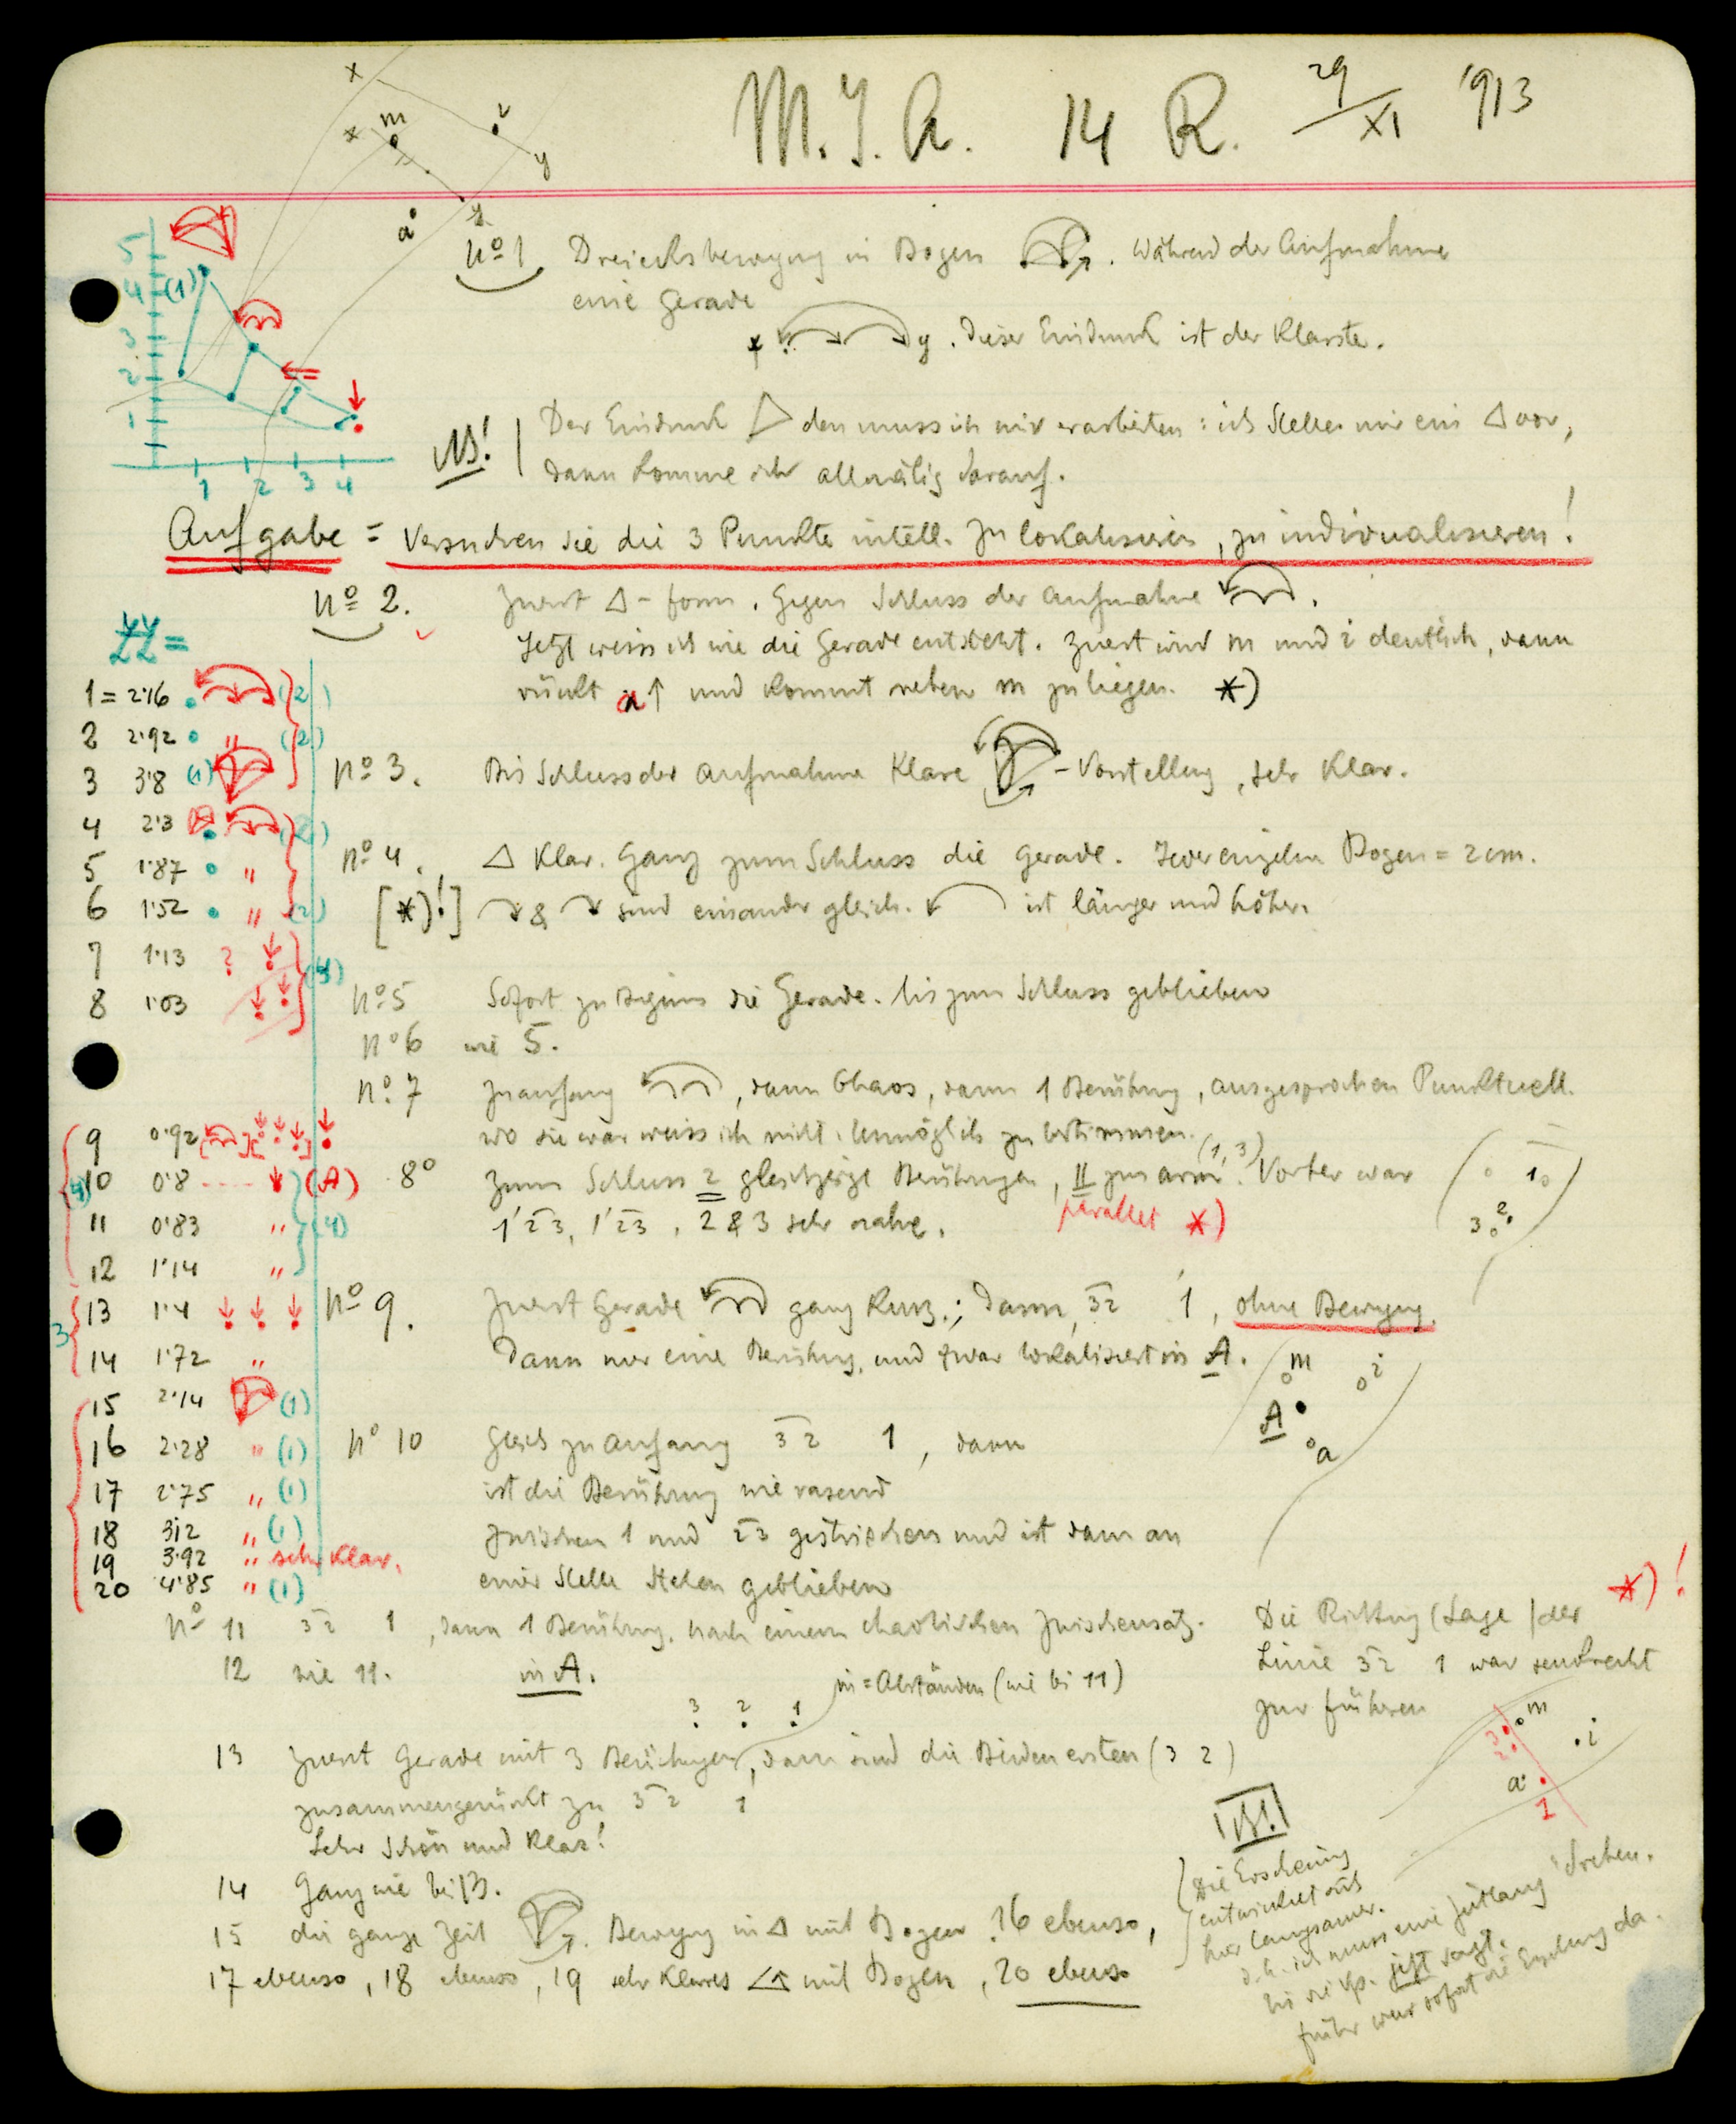 M. J. A. 14 R. 29/XI 913
x
x m
i
y
a
5
4 (1)
3
2
1
1 2 3 4
No 1 Dreiecksbewegung in Bogen . Während der Aufnahme
eine Gerade
x y . Dieser Eindruck ist der Klarste.
NB! Der Eindruck den muss ich mir erarbeiten : ich Stelle mir ein Δ vor,
dann komme ich allmälig darauf.
Aufgabe = Versuchen Sie die 3 Punkte intell. zu lokalisieren, zu individualisieren!
No 2. Zuerst Δ - form. Gegen Schluss der Aufnahme .
Jetzt weiss ich wie die Gerade entsteht. Zuerst wird m und i deutlich, dann
rückt a ↑ und kommt neben m zu liegen. *)
ZZ =
1 = 2·16 (2)
2 2·92 " (2)
3 3·8 (1)
4 2·3 (2)
5 1·87 "
6 1·52 " (2)
7 1·13 ?
8 1·03
9 0·92
10 0·8 (A)
11 0·83 " (4)
12 1·14 "
13 1·4
14 1·72 "
15 2·14 (1)
16 2·28 " (1)
17 2·75 " (1)
18 3·12 " (1)
19 3·92 " sehr Klar.
20 4·85 " (1)
No 3. Bis Schluss der Aufnahme Klare - Vorstellung, sehr Klar.
No 4. Δ Klar. Ganz zum Schluss die Gerade. Jeder einzelne Bogen = 2 cm.
[*)!] & sind einander gleich. ist länger und höher.
No 5 Sofort zu Beginn die Gerade. bis zum Schluss geblieben
No 6 wie 5.
No 7 Zu anfang , dann Chaos, dann 1 Berührung, ausgesprochen Punktuell.
wo sie war weiss ich nicht. Unmöglich zu bestimmen.
8o Zum Schluss 2 gleichzeitige Berührungen, || zum arm (1, 3). Vorher war
1 2 3, 1 2 3, 2 & 3 sehr nahe. parallel *)
1
2
3
No 9. Zuerst Gerade ganz Kurz.; Dann, 3 2 1, ohne Bewegung.
Dann nur eine Berührung, und zwar lokalisiert in A.
m
i
A
a
No 10 Gleich zu anfang 3 2 1, dann
ist die Berührung wie rasend
zwischen 1 und 2 3 gestrichen und ist dann an
einer Stelle stehen geblieben
No 11 3 2 1, dann 1 Berührung. nach einem chaotischen Zwischensatz.
12 wie 11. in A.
*)!
Die Richtung (Lage) der
Linie 3 2 1 war senkrecht
zur früheren
m
3
2
i
a
1
3 2 1 in = Abständen (wie bei 11)
13 Zuerst Gerade mit 3 Berührungen, dann sind die Beiden ersten (3 2)
zusammengerückt zu 3 2 1
Sehr Schön und Klar!
14 Ganz wie bei 13.
15 die ganze Zeit . Bewegung in Δ mit Bogen. 16 ebenso,
17 ebenso, 18 ebenso, 19 sehr Klares Δ mit Bogen, 20 ebenso
NB!
Die Erscheinung
entwickelt sich
hier langsamer.
d. h. ich muss eine Zeitlang "drehen.
bis die Vp. jetzt sagt.
früher war sofort die da.